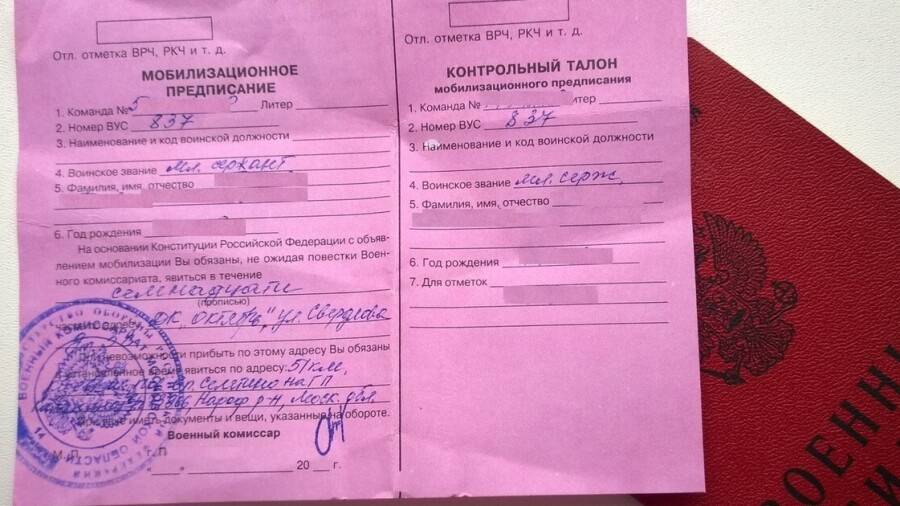 Отл. отметка ВРЧ, РКЧ и т. д.
МОБИЛИЗАЦИОННОЕ
ПРЕДПИСАНИЕ
1. Команда № 5 Литер
2. Номер ВУС 837
3. Наименование и код воинской должности
4. Воинское звание мл. сержант
5. Фамилия, имя, отчество
6. Год рождения
На основании Конституции Российской Федерации с объяв-
лением мобилизации Вы обязаны, не ожидая повестки Воен-
ного комиссариата, явиться в течение
семнадцати
(прописью)
ДК "Октябрь", ул. Свердлова
невозможности прибыть по этому адресу Вы обязаны
установленное время явиться по адресу: 51 км,
Нароф. р-н, Моск. обл.
иметь документы и вещи, указанные на обороте.
Военный комиссар
М.П.
20 г.
Отл. отметка ВРЧ, РКЧ и т. д.
КОНТРОЛЬНЫЙ ТАЛОН
мобилизационного предписания
1. Команда № Литер
2. Номер ВУС 837
3. Наименование и код воинской должности
4. Воинское звание мл. серж.
5. Фамилия, имя, отчество
6. Год рождения
7. Для отметок
ВОЕНН